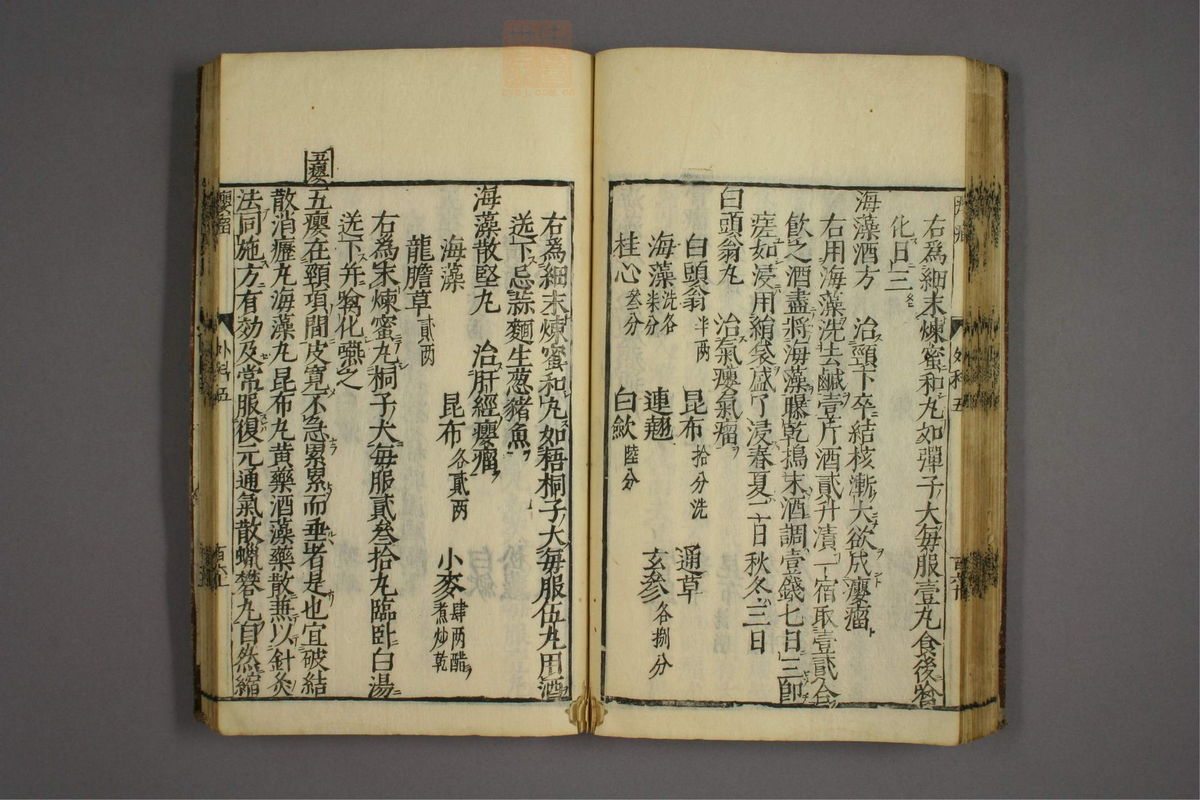 右為細末煉蜜和丸如彈子大毎服壹丸食後噙
化日三
海藻酒方　治頸下卒結核漸大欲成癭瘤
右用海藻洗去鹹壹斤酒貳升漬一宿取壹貳合
飲之酒盡將海藻曝乾搗末酒調壹錢七日三即
瘥如浸用絹袋盛了浸春夏二日秋冬三日
白頭翁丸　治氣癭氣瘤
白頭翁半兩　昆布拾分洗　通草
海藻洗各柒分　連翹　玄參各捌分
桂心叁分　白歛陸分
右為細末煉蜜和丸如梧桐子大毎服伍丸用酒
送下忌蒜麵生葱猪魚
海藻散堅丸　治肝經癭瘤
海藻　昆布各貳两　小麥肆两醋煮炒乾
龍膽草貳两
右為末煉蜜丸桐子大毎服貳叁拾丸臨臥白湯
送下并噙化嚥之
五癭
五癭在頸項間皮寛不急累累而垂者是也宜破結
散消癧丸海藻丸昆布丸黄藥酒藻藥散兼以針灸
法同施方有効及常服復元通氣散蠟礬丸自然縮
癭瘤
外科五